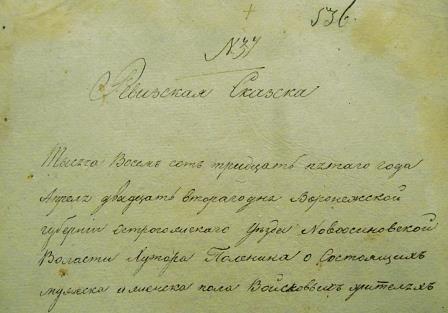 536.
N37
Ревизская Сказка
Тысяча Восемь сотъ тридцать пятаго года
Апреля двадцать втораго дня Воронежской
губернии Острогожскаго уезда Новоосиновской
Волости Хутора Паленина о Состоящихъ
мужеска и женска пола Войсковыхъ жителяхъ